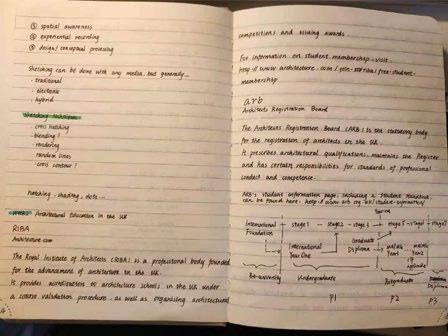 ① spatial awareness
② experiential recording
③ design/conceptual processing
Sketching can be done with any media, but generally...
· traditional
· electronic
· hybrid
Sketching
· cross hatching
· blending?
· rendering
· random lines
· cross contour?
hatching, shading, dots...
Architectural Education in the UK
RIBA
Architecture.com
The Royal Institute of Architects (RIBA) is a professional body founded
for the advancement of architecture in the UK.
It provides accreditation to architecture schools in the UK under
a course validation procedure, as well as organising architectural
competitions and issuing awards.
For information on student membership, visit:
membership
arb
Architects Registration Board
The Architects Registration Board (ARB) is the statutory body
for the registration of architects in the UK.
It prescribes architectural qualifications, maintains the Register
and has certain responsibilities for standards of professional
conduct and competence.
ARB's student information page, including a student handbook,
can be found here:
International
Foundation
stage 1
stage 2
International
Year One
Graduate
Diploma
Pre-university
Undergraduate
Postgraduate
P1
P2
P3